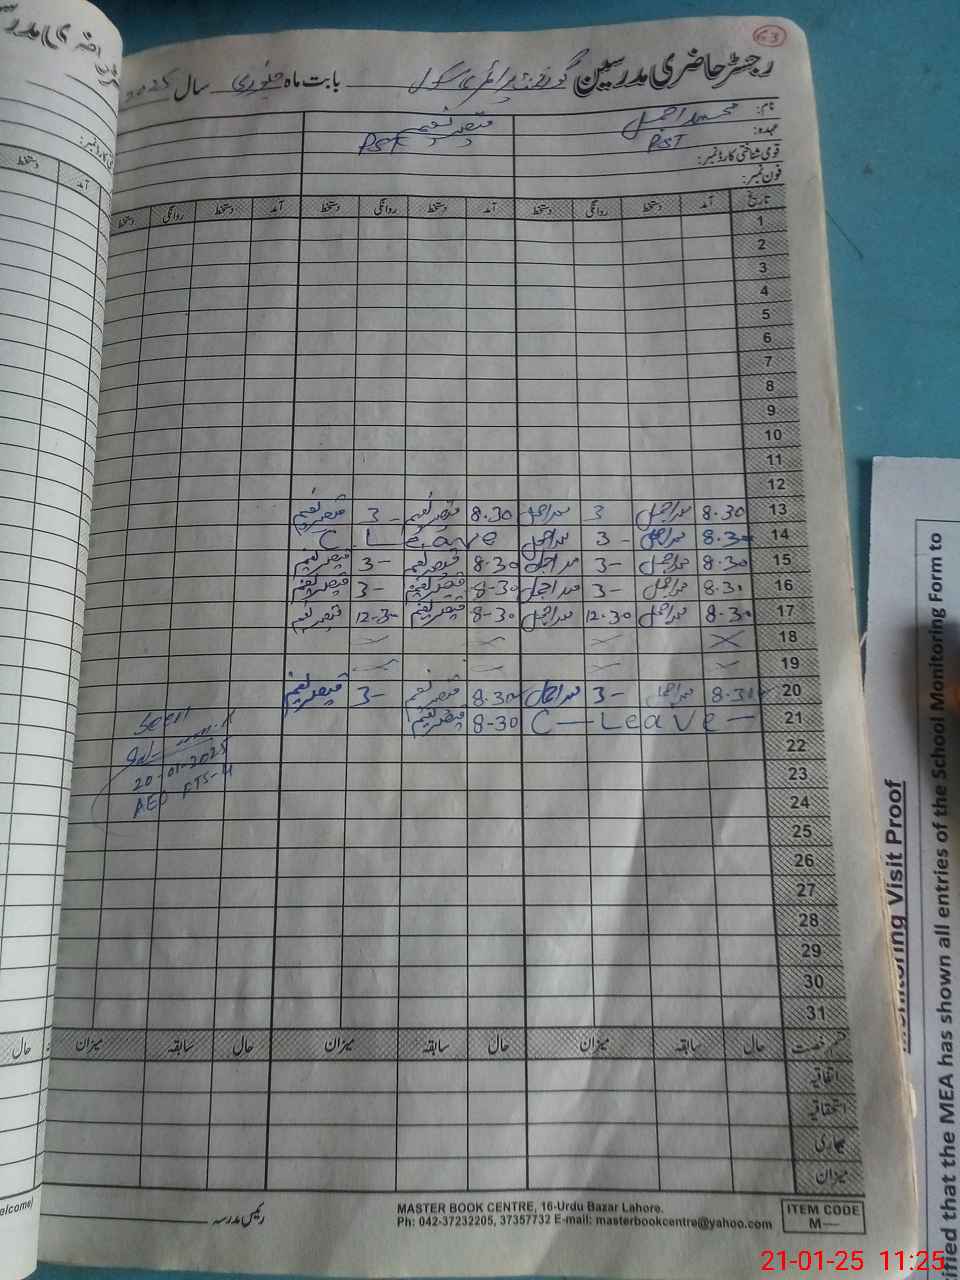 63
رجسٹر حاضری مدرسین گورنمنٹ پرائمری سکول بابت ماہ جنوری سال 2025
نام: محمد اجمل قیصر نعیم
عہدہ: PST PST
قومی شناختی کارڈ نمبر:
فون نمبر:
تاریخ آمد دستخط روانگی دستخط آمد دستخط روانگی دستخط آمد دستخط روانگی دستخط
1
2
3
4
5
6
7
8
9
10
11
12
13 8.30 محمد اجمل 3 محمد اجمل 8.30 قیصر نعیم 3- قیصر نعیم
14 8.30 محمد اجمل 3- محمد اجمل C. Leave
15 8.30 محمد اجمل 3- محمد اجمل 8.30 قیصر نعیم 3- قیصر نعیم
16 8.30 محمد اجمل 3- محمد اجمل 8-30 قیصر نعیم 3- قیصر نعیم
17 8.30 محمد اجمل 12.30 محمد اجمل 8-30 قیصر نعیم 12-30 قیصر نعیم
18
19
20 8.30 محمد اجمل 3- محمد اجمل 8.30 قیصر نعیم 3- قیصر نعیم
21 C-Leave- 8-30 قیصر نعیم
Seen
20-01-2025
AEO
22
23
24
25
26
27
28
29
30
31
قسم رخصت حال سابقہ میزان حال سابقہ میزان حال سابقہ میزان
اتفاقیہ
استحقاقیہ
بیماری
میزان
رئیس مدرسہ
MASTER BOOK CENTRE, 16-Urdu Bazar Lahore.
Ph: 042-37232205, 37357732 E-mail: masterbookcentre@yahoo.com
ITEM CODE
M—
دستخط آمد
حال
elcome)
Monitoring Visit Proof
ified that the MEA has shown all entries of the School Monitoring Form to
21-01-25 11:25